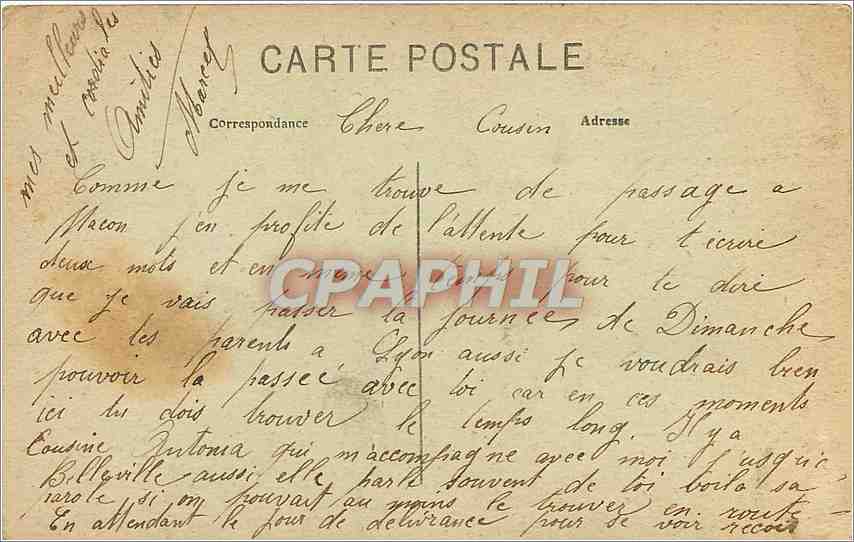 CARTE POSTALE
Correspondance
Adresse
Chere Cousin
Comme je me trouve de passage a
Macon j'en profite de l'attente pour t'écrire
deux mots et en meme temps pour te dire
que je vais passer la Journées de Dimanche
avec les parents a Lyon aussi je voudrais bien
pouvoir la passeé avec toi car en ces moments
ici tu dois trouver le temps long. Il y a
Cousine Antonia qui m'accompagne avec moi j'usqu'à
Belleville aussi elle parle souvent de toi voila sa
parole si on pouvait au moins le trouver en route
En attendant le jour de delivrance pour se voir recois
mes meilleurs
et cordiales
Amitiés
Marcel
CPAPHIL